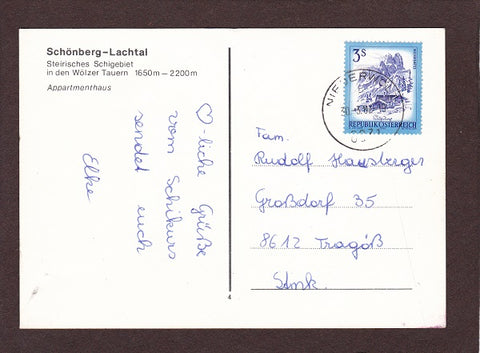 Schönberg-Lachtal
Steirisches Schigebiet
in den Wölzer Tauern 1650m—2200m
Appartmenthaus
♡-liche Grüße
vom Schikurs
sendet euch
Elke
3s
REPUBLIK ÖSTERREICH
Fam.
Rudolf Hausberger
Großdorf 35
8612 Tragöß
Stmk.
4